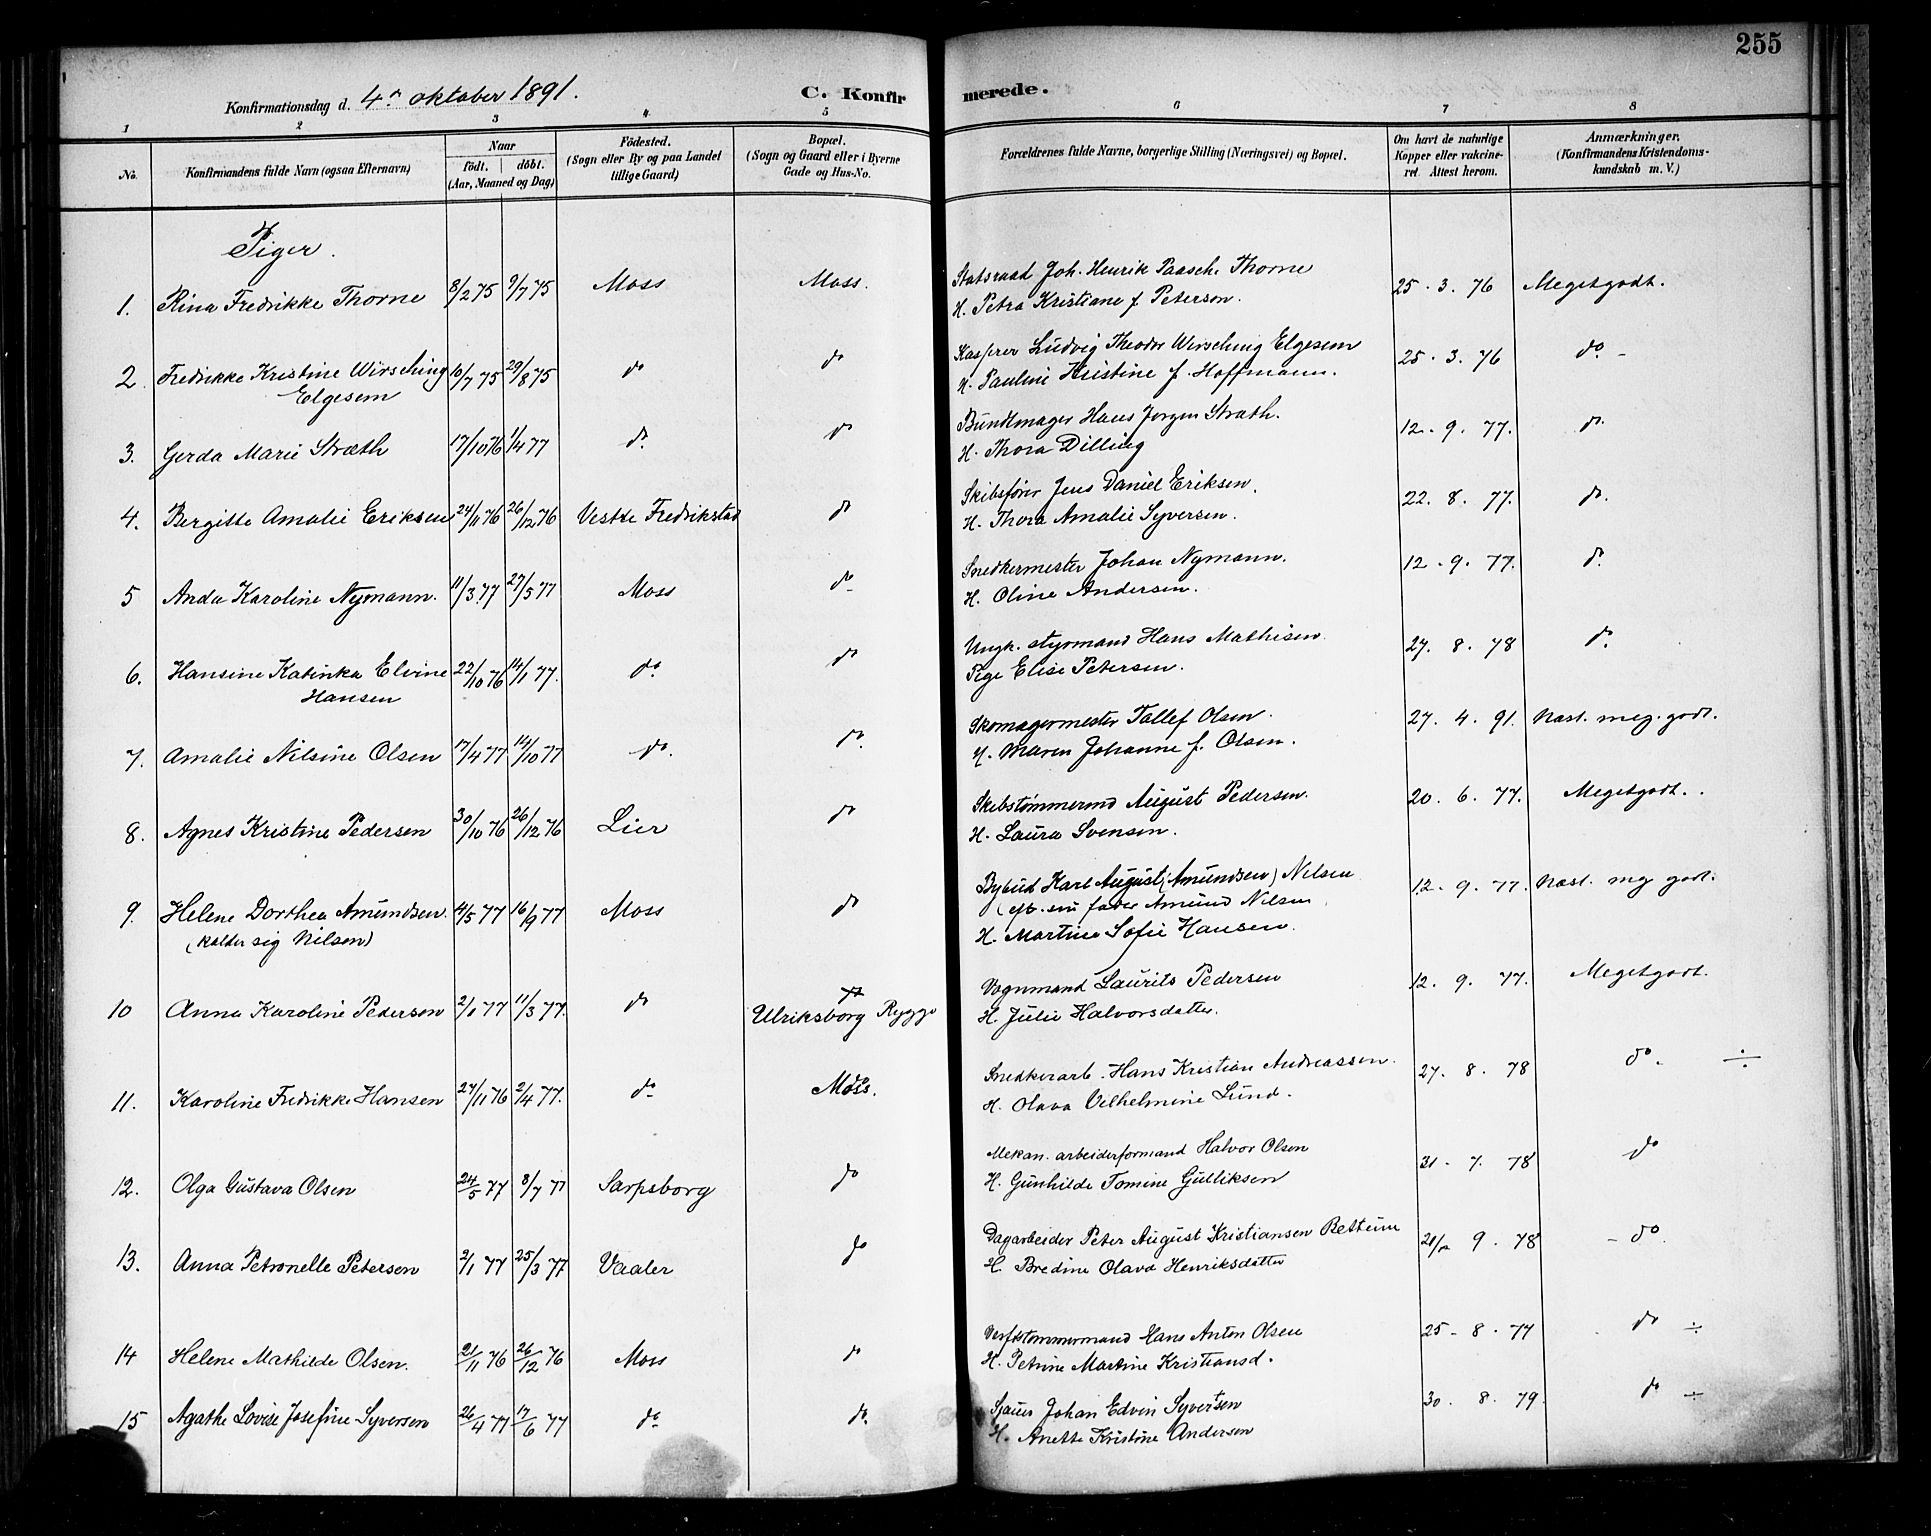 255
Konfirmationsdag d. 4de oktober 1891.
C. Konfirmerede.
1 2 3 4 5 6 7 8
No.
Konfirmandens fulde Navn (ogsaa Efternavn)
Naar
födt. döbt.
(Aar, Maaned og Dag)
Födested.
(Sogn eller By og paa Landet
tillige Gaard)
Bopæl.
(Sogn og Gaard eller i Byerne
Gade og Hus-No.
Forældrenes fulde Navne, borgerlige Stilling (Næringsvei) og Bopæl.
Om havt de naturlige
Kopper eller vakcine-
ret. Attest herom.
Anmærkninger.
(Konfirmandens Kristendoms-
kundskab m. V.)
Piger.
1. Rina Fredrikke Thorne 8/2 75 9/7 75 Moss Moss. Statsraad Joh. Henrik Paasche Thorne 25. 3. 76 Megetgodt.
H. Petra Kristiane f. Peterson.
2. Fredrikke Kristine Wirsching 10/7 75 29/8 75 do do Kasserer Ludvig Theodor Wirsching Elgesem 25. 3. 76 do.
Elgesem
H. Pauline Kristine f. Hoffmann.
3. Gerda Marie Stræth 17/10 76 1/4 77 do. do Bundtmager Hans Jørgen Stræth. 12. 9. 77. do.
H. Thora Dilling
4. Bergitte Amalie Eriksen 24/11 76 26/12 76 Vestre Fredrikstad do Skibsfører Jens Daniel Eriksen. 22. 8. 77. do.
H. Thora Amalie Syversen.
5 Anda Karoline Nymann. 11/3 77 27/5 77 Moss do Snedkermester Johan Nymann. 12. 9. 77. do.
H. Oline Andersen.
6. Hansine Katinka Elvine 22/10 76 14/1 77. do. do Ungk. styrmand Hans Mathisen 27. 8. 78 do.
Hansen
Pige Elise Petersen.
7. Amalie Nilsine Olsen 17/4 77 14/10 77 do. do. Skomagermester Tallef Olsen. 27. 4. 91. Næst. meg. godt.
H. Maren Johanne f. Olsen.
8. Agnes Kristine Pedersen 30/10 76 26/12 76 Lier do Skibstømmermd August Pedersen. 20. 6. 77. Megetgodt.
H. Laura Svensen.
9. Helene Dorthea Amundsen. 4/5 77 16/9 77 Moss do Bybud Karl August (Amundsen) Nilsen 12. 9. 77. Næst. meg godt.
(kalder sig Nilsen)
(eft. sin fader Amund Nilsen
H. Martine Sofie Hansen.
10 Anna Karoline Pedersen 2/1 77 11/3 77. do Ulriksborg Rygge Vognmand Laurits Pedersen 12. 9. 77. Megetgodt.
H. Julie Halvorsdatter.
11. Karoline Fredrikke Hansen 27/11 76 2/4 77. do Moss. Snedkerarb. Hans Kristian Andreassen. 27. 8. 78 do. ÷
H. Olava Vilhelmine Lund.
12. Olga Gustava Olsen 24/5 77 8/7 77 Sarpsborg do Mekan. arbeiderformand Halvor Olsen 31. 7. 78 do
H. Gunhilde Tomine Gulliksen
13. Anna Petronelle Petersen 2/1 77 25/3 77 Vaaler do Dagarbeider Peter August Kristiansen Bettum 9. 78 do
H. Bredine Olava Henriksdatter
14 Helene Mathilde Olsen. 21/11 76 26/12 76 Moss do Verftstømmermand Hans Anton Olsen 25. 8. 77 do ÷
H. Petrine Martine Kristiansd.
15 Agathe Lovise Josefine Syversen 26/4 77 17/6 77 do do. Sjauer Johan Edvin Syversen 30. 8. 79. do ÷
H. Anette Kristine Andersen